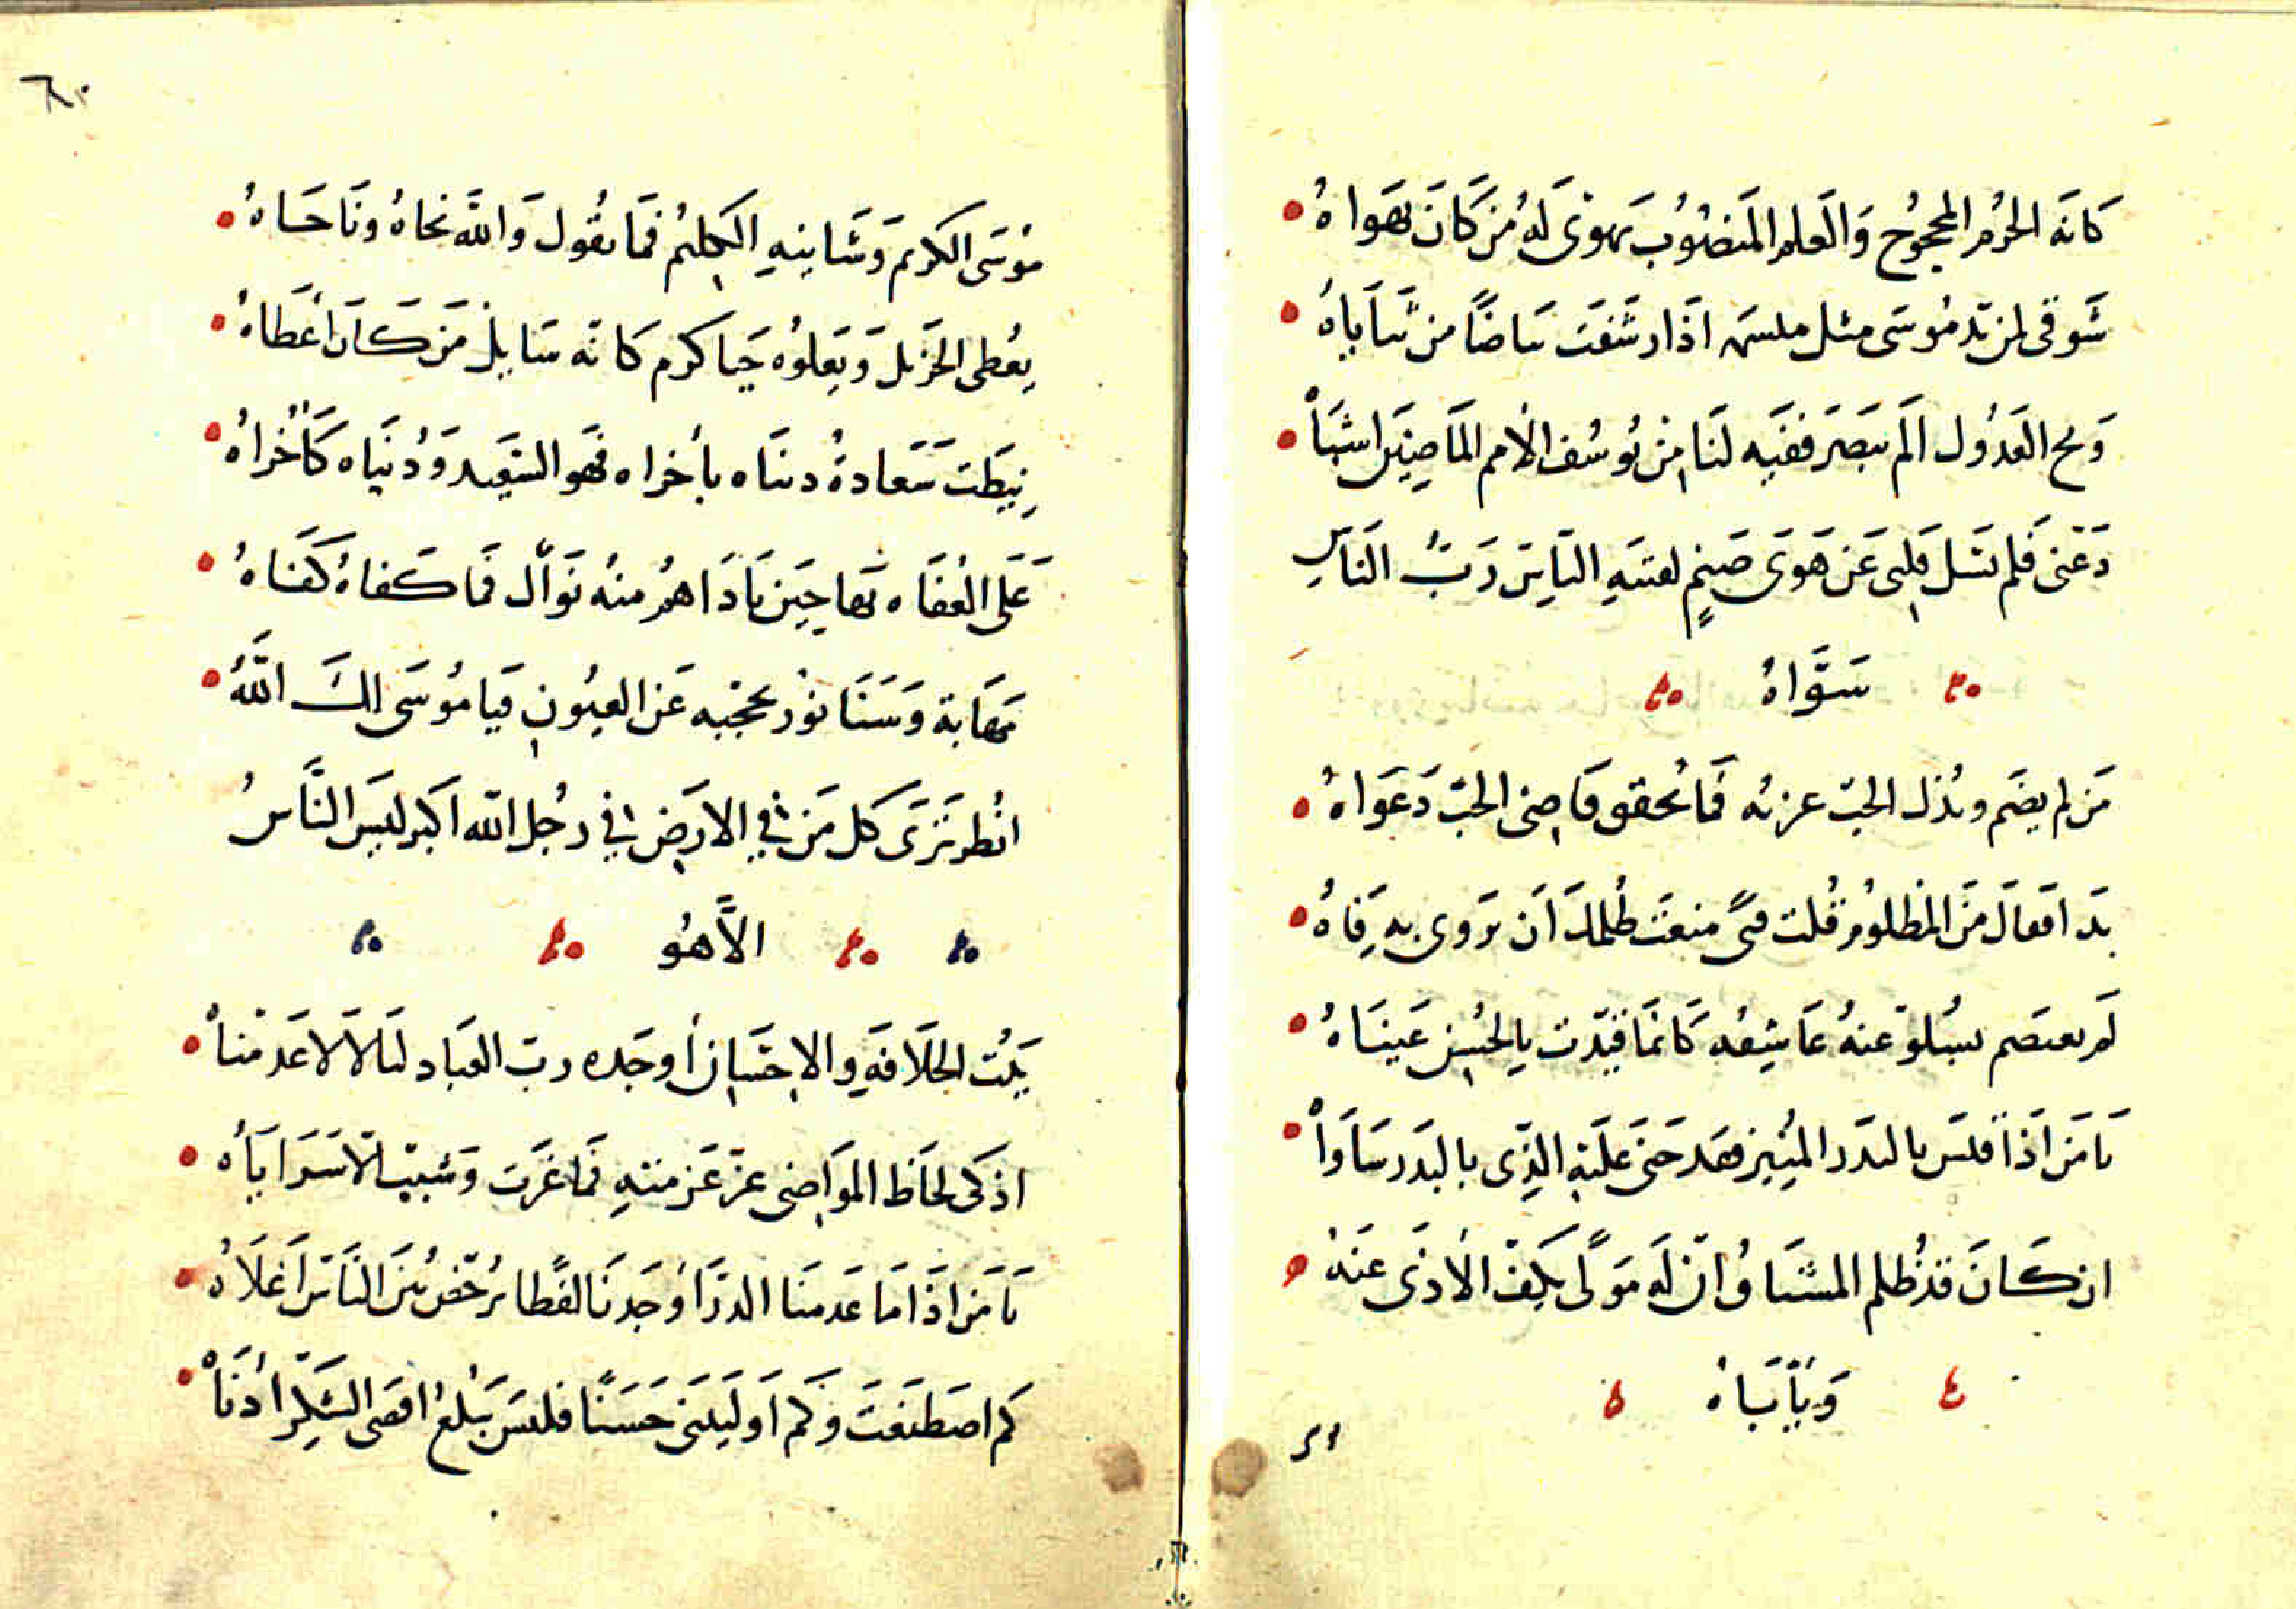 كَانَه الحُرُم المحجُوج وَالعَلم المَنصُوب يَهوى لَهُ مَن كَانَ يَهوَاهُ
شَوقى لمن يد مُوسَى مثل مبسمه اذَا رشَفتَ رضَابًا من ثنَايَاهُ
وَيح العَذول الَم يبصَر ففيه لنَا مِن يُوسُف الأمم الماضِينَ اشبَاهْ
دَعنى فَلم يسَل قلبِى عَن هَوَى صَنمٍ لفتنَةِ النَّاسِ رَبُّ النَاسِ
سَوَّاهُ
مَن لم يضَم ويذل الحبّ عزته فَما يُحقق قاضِى الحبّ دَعوَاهُ
بدَا فقالَ مَن المظلُومُ قُلت فمًى منعتَ ظُلمكَ ان يَروى به فَاهُ
لَم يعتصم بسُلوّ عنهُ عَاشِقُه كَانما قيّدَت بِالحُسنِ عَينَاهُ
يَا مَن اذَا قلسَ بالبَدر المنِير فقد حَنى عَليَهِ الذِى بالبَدر سَاوَاهْ
ان كَانَ قد ظُلم المشتَاقُ انّ لَه مَولًى يكفّ الأذَى عَنهُ
وَيَأبَاهُ
مُوسَى الكريم وَشَانِيهِ الكلِيمُ فَما يقُول وَاللهَ نجاهُ ونَاجَاهُ
يعُطى الجزيل وَيَعلوُه حَيا كرم كَانّه سَايل مَن كَانَ أعطَاهُ
نِيطَت سَعَادةُ دنيَاه بأخراه فهَو السَعِيد وَدُنيَاه كَأُخراهُ
عَلى العُفَاه بها حِينَ نَادَاهُم منهُ نوَالٌ فَما كفاهُ كفّاهُ
مَهَابة وَسَنَا نُورٍ يحجّبه عَن العيُونِ فيَا مُوسَى لكَ اللهُ
انُظر تَرَى كل مَن فِي الارضِ فِي رَجُل الله اكبر ليسَ النَّاسُ
الاَّهُو
بَيتُ الخلَافَةِ والاحسَانِ أوجَده ربّ العبَاد لنَا لاَ لاَ عَدمنَاْ
اذكَى لحَاظ الموَاضِى عزّ عَزمتهِ فَما غزَت وَشبّت الاّ سَرَايَاهُ
يَا مَن اذَا مَا عَدمنَا الدرّ أوجَدنَا لفظًا يُرخّصُ بينَ النَاسِ أغلَاهُ
كم اصطنعَتَ وَكم اَوليتَنى حَسَنًا فليسَ يَبلُغ اقصَى الشكر أدنَاهْ